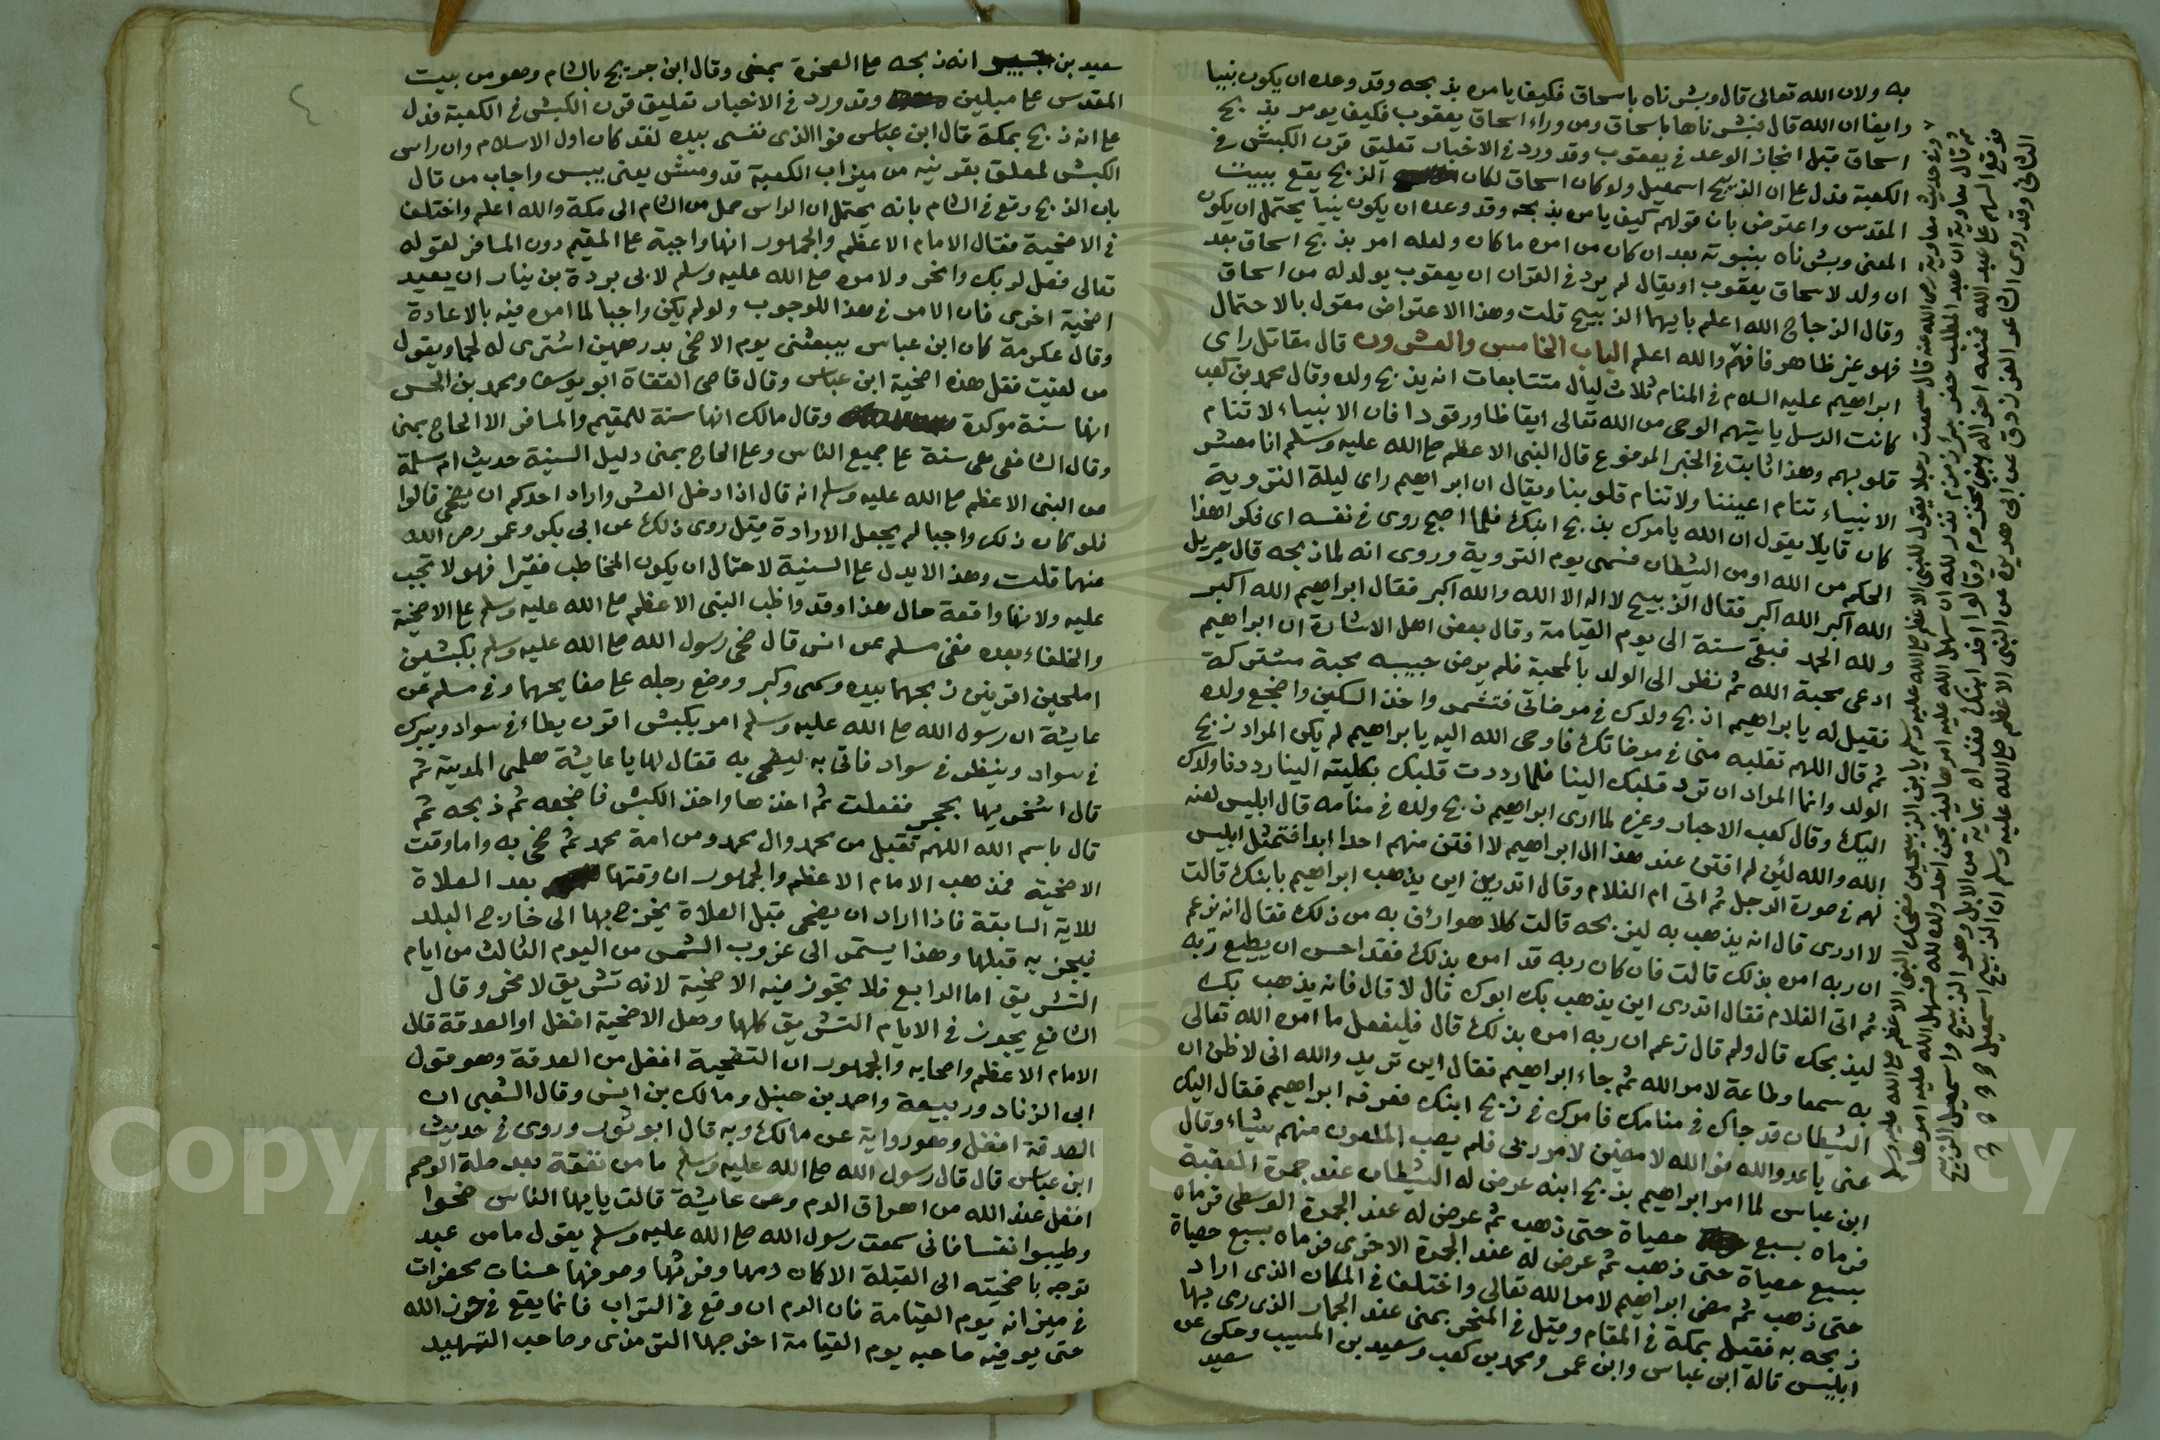 به ولان الله تعالى قال وبشرناه باسحاق فكيف يامره بذبحه وقد وعده ان يكون نبيا
وايضا ان الله قال فبشرناها باسحاق ومن وراء اسحاق يعقوب فكيف يومر بذبح
اسحاق قبل انجاز الوعد في يعقوب وقد ورد في الاخبار تعليق قرن الكبش في
الكعبة فدل على ان الذبيح اسمعيل ولو كان اسحاق لكان الذبح يقع ببيت
المقدس واعترض بان قولهم كيف يامره بذبحه وقد وعده ان يكون نبيا يحتمل ان يكون
المعنى وبشرناه بنبوته بعد ان كان من امره ما كان ولعله امر بذبح اسحاق بعد
ان ولد لاسحاق يعقوب او يقال لم يرد في القران ان يعقوب يولد له من اسحاق
وقال الزجاج الله اعلم بايهما الذبيح قلت وهذا الاعتراض مقول بالاحتمال
فهو غير ظاهر فافهم والله اعلم الباب الخامس والعشرون قال مقاتل راى
ابراهيم عليه السلام في المنام ثلاث ليال متتابعات انه يذبح ولده وقال محمد بن كعب
كانت الرسل ياتيهم الوحي من الله تعالى ايقاظا ورقودا فان الانبياء لا تنام
قلوبهم وهذا ثابت في الخبر المرفوع قال النبي الاعظم صلى الله عليه وسلم انا معشر
الانبياء تنام اعيننا ولا تنام قلوبنا ويقال ان ابراهيم راى ليلة التروية
كان قايلا يقول ان الله يامرك بذبح ابنك فلما اصبح روى في نفسه اي فكر اهذا
الحكم من الله او من الشيطان فسمى يوم التروية وروى انه لما ذبحه قال جبريل
الله اكبر الله اكبر فقال الذبيح لا اله الا الله والله اكبر فقال ابراهيم الله اكبر
ولله الحمد فبقى سنة الى يوم القيامة وقال بعض اهل الاشارة ان ابراهيم
ادعى محبة الله ثم نظر الى الولد بالمحبة فلم يرض حبيبه محبة مشتركة
فقيل له يا ابراهيم اذبح ولدك في مرضاتي فتشمر واخذ السكين واضجع ولده
ثم قال اللهم تقبله مني في مرضاتك فاوحى الله اليه يا ابراهيم لم يكن المراد ذبح
الولد وانما المراد ان ترد قلبك الينا فلما رددت قلبك بكليته الينا رددنا ولدك
اليك وقال كعب الاحبار وغيره لما ارى ابراهيم ذبح ولده في منامه قال ابليس لعنه
الله والله لئن لم افتن عند هذا ال ابراهيم لا افتن منهم احدا ابدا فتمثل ابليس
لهم في صورة الرجل ثم اتى ام الغلام وقال اتدرين اين يذهب ابراهيم بابنك قالت
لا ادرى قال انه يذهب به ليذبحه قالت كلا هو ارؤف به من ذلك فقال انه يزعم
ان ربه امره بذلك قالت فان كان ربه قد امره بذلك فقد احسن ان يطيع ربه
ثم اتى الغلام فقال اتدرى اين يذهب بك ابوك قال لا قال فانه يذهب بك
ليذبحك قال ولم قال زعم ان ربه امره بذلك قال فليفعل ما امره الله تعالى
به سمعا وطاعة لامر الله ثم جاء ابراهيم فقال اين تريد والله اني لاظن ان
الشيطان قد جاك في منامك فامرك في ذبح ابنك فعرفه ابراهيم فقال اليك
عني يا عدو الله فوالله لامضين لامر ربي فلم يصب الملعون منهم شياء وقال
ابن عباس لما امر ابراهيم بذبح ابنه عرض له الشيطان عند جمرة العقبة
فرماه بسبع حصياة حتى ذهب ثم عرض له عند الجمرة الوسطى فرماه
بسبع حصياة حتى ذهب ثم عرض له عند الجمرة الاخرى فرماه بسبع حصياة
حتى ذهب ثم مضى ابراهيم لامر الله تعالى واختلف في المكان الذي اراد
ذبحه به فقيل بمكة في المقام وقيل في المنحر بمنى عند الجمار الذي رمى بها
ابليس قاله ابن عباس وابن عمر ومحمد بن كعب وسعيد بن المسيب وحكى عن
سعيد
وفي حديث معاوية رضي الله عنه قال سمعت رجلا يقول للنبي الاعظم صلى الله عليه وسلم يا ابن الذبيحين فضحك النبي الاعظم صلى الله عليه وسلم
ثم قال معاوية ان عبد المطلب حفر بئر زمزم نذر لله ان سهل الله عليه امرها ليذبحن احد ولده لله فسهل الله عليه امرها
فوقع السهم على عبد الله فمنعه اخواله بني مخزوم وقالوا افد ابنك ففداه بماية من الابل وهو الذبيح واسمعيل الذبيح
الثاني وقد روى الشاعر الفرزدق عن ابي هديرة عن النبي الاعظم صلى الله عليه وسلم ان الذبيح اسمعيل
سعيد بن جبير انه ذبحه على الصخرة بمنى وقال ابن جريج بالشام وهو من بيت
المقدس على ميلين وقد ورد في الاخبار تعليق قرن الكبش في الكعبة فدل
على انه ذبح بمكة قال ابن عباس فوالذي نفسي بيده لقد كان اول الاسلام وان راس
الكبش لمعلق بقرنيه من ميزاب الكعبة قد ومش يعني يبس واجاب من قال
بان الذبح وقع في الشام بانه يحتمل ان الراس حمل من الشام الى مكة والله اعلم واختلف
في الاضحية فقال الامام الاعظم والجمهور انها واجبة على المقيم دون المسافر لقوله
تعالى فصل لربك وانحر ولامره صلى الله عليه وسلم لابي بردة بن ينار ان يعيد
اضحية اخرى فان الامر في هذا للوجوب ولو لم يكن واجبا لما امره فيه بالاعادة
وقال عكرمة كان ابن عباس يبعثني يوم الاضحى بدرهمين اشترى له لحما ويقول
من لقيت فقل هذه اضحية ابن عباس وقال قاضي القضاة ابو يوسف ومحمد بن الحسن
انها سنة موكدة وقال مالك انها سنة للمقيم والمسافر الا الحاج بمنى
وقال الشافعي هي سنة على جميع الناس وعلى الحاج بمنى دليل السنية حديث ام سلمة
عن النبي الاعظم صلى الله عليه وسلم انه قال اذا دخل العشر واراد احدكم ان يضحي قالوا
فلو كان ذلك واجبا لم يجعل الارادة قيل روى ذلك عن ابي بكر وعمر رضي الله
عنهما قلت وهذا لا يدل على السنية لاحتمال ان يكون المخاطب فقيرا فهو لا تجب
عليه ولانها واقعة حال هذا وقد واظب النبي الاعظم صلى الله عليه وسلم على الاضحية
والخلفاء بعده ففي مسلم عن انس قال ضحى رسول الله صلى الله عليه وسلم بكبشين
املحين اقرنين ذبحهما بيده وسمى وكبر ووضع رجله على صفايحهما وفي مسلم عن
عايشة ان رسول الله صلى الله عليه وسلم امر بكبش اقرن يطاء في سواد ويبرك
في سواد وينظر في سواد فاتى به ليضحي به فقال لها يا عايشة هلمي المدية ثم
قال اشحذيها بحجر ففعلت ثم اخذها واخذ الكبش فاضجعه ثم ذبحه ثم
قال باسم الله اللهم تقبل من محمد وال محمد ومن امة محمد ثم ضحى به واما وقت
الاضحية فذهب الامام الاعظم والجمهور ان وقتها بعد الصلاة
للاية السابقة فاذا اراد ان يضحى قبل الصلاة يخرج بها الى خارج البلد
فيجزيه قبلها وهذا يستمر الى غروب الشمس من اليوم الثالث من ايام
التشريق اما الرابع فلا تجوز فيه الاضحية لانه تشريق لا نحر وقال
الشافع يجوز في الايام التشريق كلها وهل الاضحية افضل او الصدقة قال
الامام الاعظم واصحابه والجمهور ان التضحية افضل من الصدقة وهو قول
ابي الزناد وربيعة واحمد بن حنبل ومالك بن انس وقال الشعبي ان
الصدقة افضل وهو رواية عن مالك وبه قال ابو ثور وروى في حديث
ابن عباس قال قال رسول الله صلى الله عليه وسلم ما من نفقة بعد صلة الرحم
افضل عند الله من اهراق الدم وعن عايشة قالت يا ايها الناس ضحوا
وطيبوا نفسا فاني سمعت رسول الله صلى الله عليه وسلم يقول ما من عبد
توجه باضحيته الى القبلة الا كان دمها وفرثها وصوفها حسنات محضرات
في ميزانه يوم القيامة فان الدم ان وقع في التراب فانما يقع في حرز الله
حتى يوفيه صاحبه يوم القيامة اخرجها الترمذى وصاحب التمهيد
Copyright © King Saud University